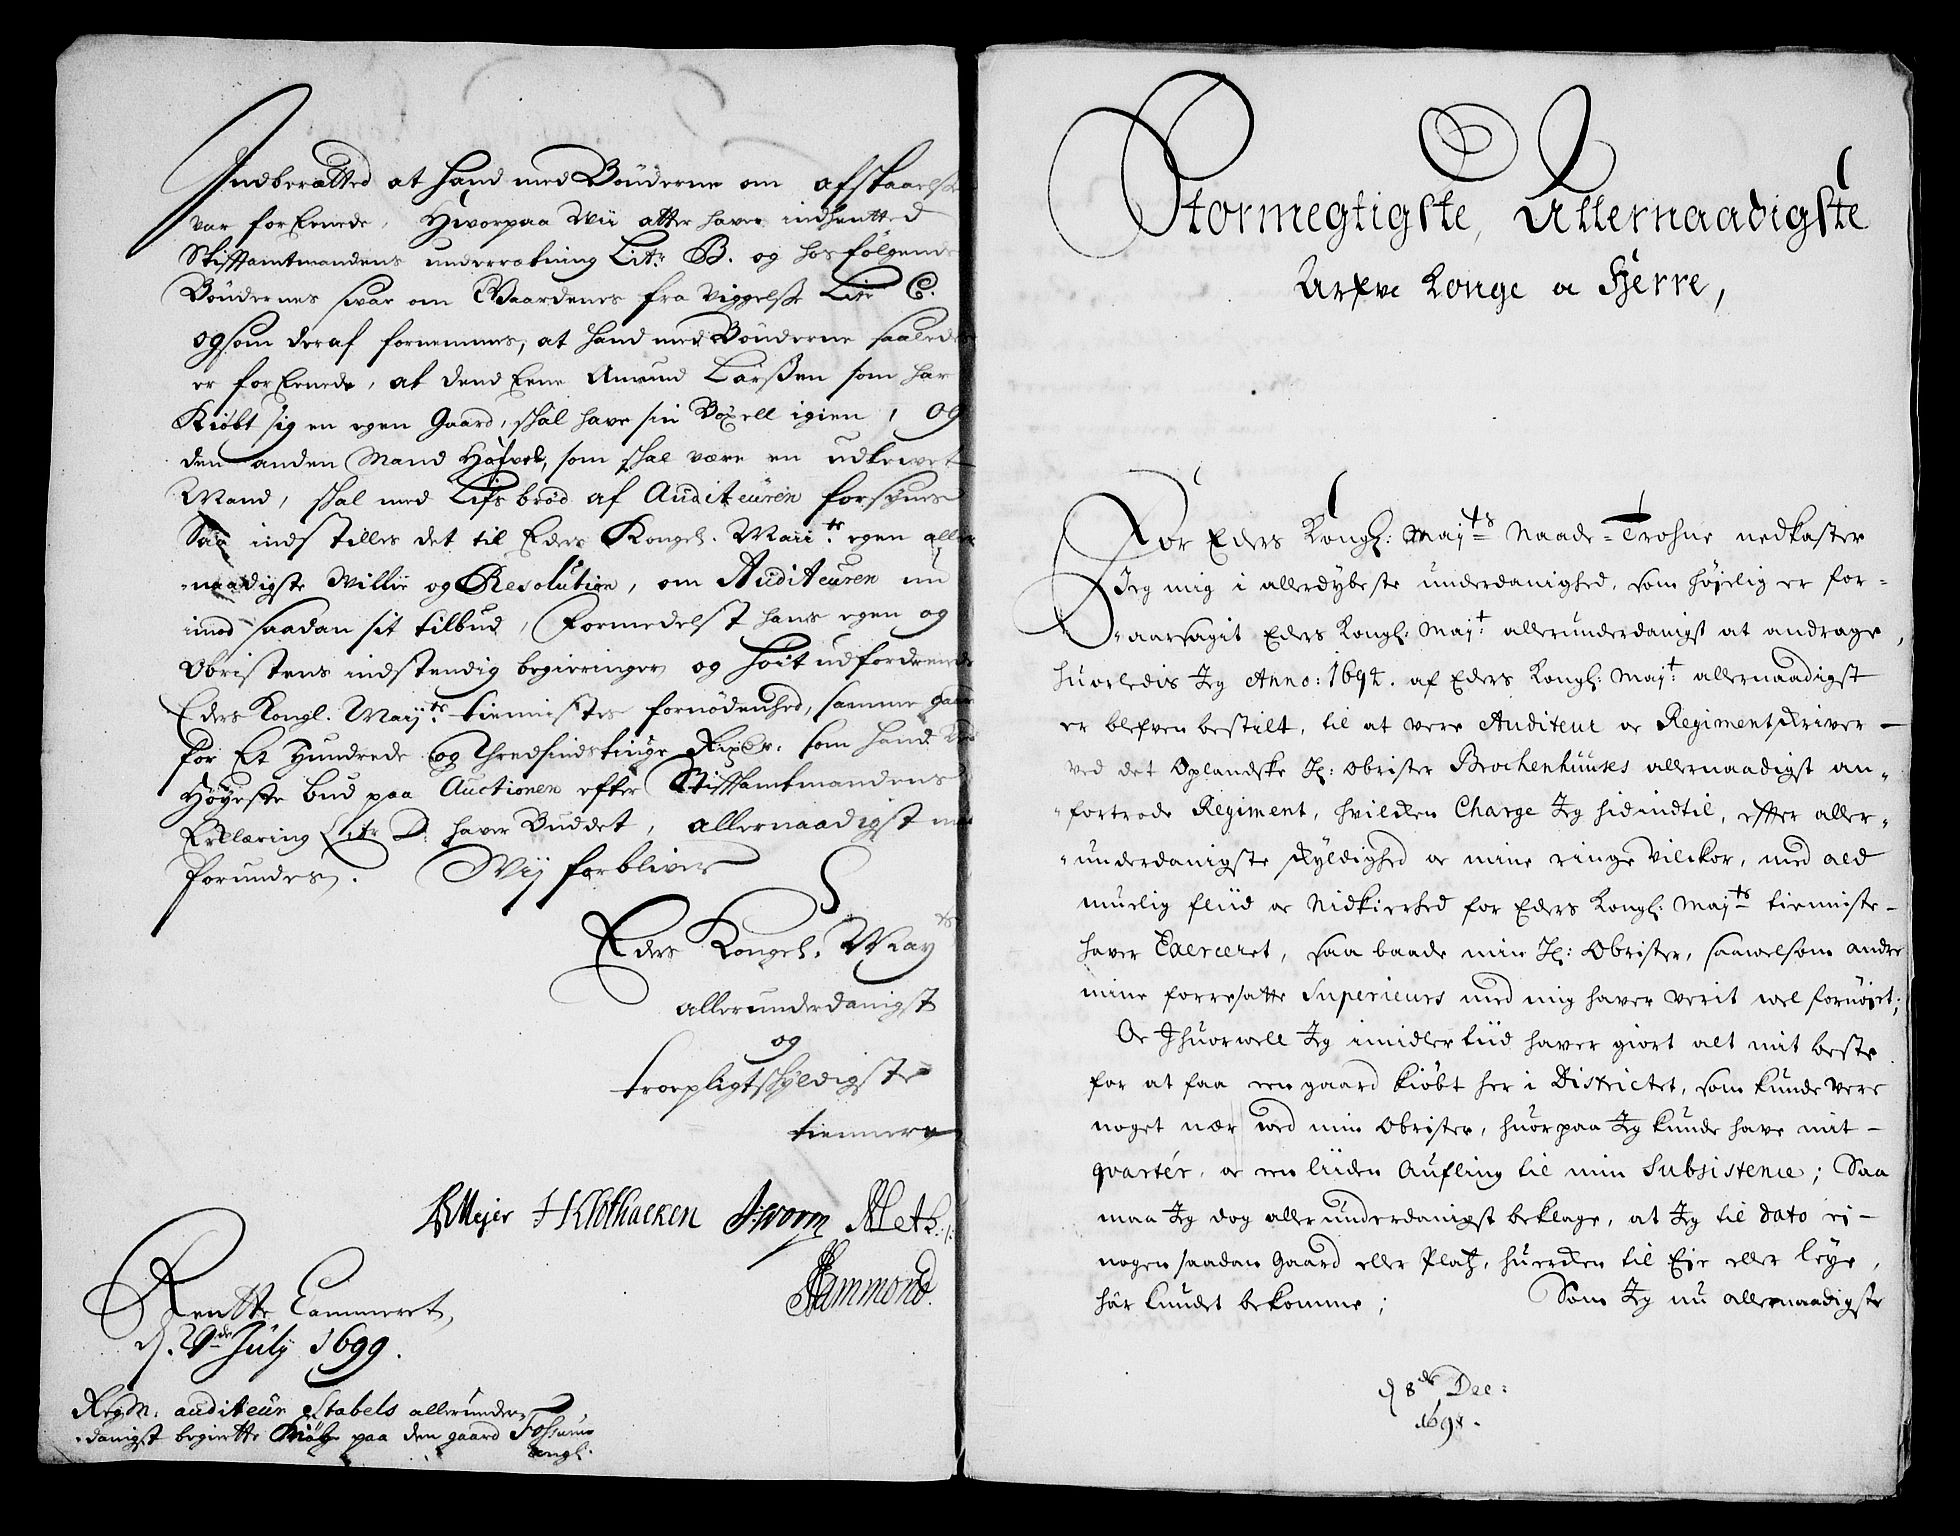 Indberætted at hand med Bönderne om afstaaelse
var forEenede, Hworpaa Wii atter haver indhentted
Stifftamtmandens underretning Litr B. og hosfølgende
Böndernes svar om Gaardenes fra viggelse Litr C.
og som deraf fornemmes, at hand med Bönderne saalede
er forEenede, at dend Eene Amund Larßen som har
Kiöbt sig en egen Gaard, skal have sin Böxell igien, og
den anden Mand, som skal være en udlevet
Mand, skal med Lifs bröd af Auditeuren forsynes
Saa indstilles det til Eders Kongel. Maii.ts egen aller
naadigste Willie og Resolution, om Auditeuren nu
imod saadan sit tilbud, Formedelst hans egen og
Obristens indstendig begieringer og höit udfordrende
Eders Kongl. Maij.ts tiennistes fornödenhed, samme gaar
for Et Hundrede og Thredsindstiuge Rixdr. som hand
Höyeste bud paa Auctionen efter Stifftamtmandens
Erklæring Litr D. haver Buddet, allernaadigst
forundes. Wij forbliver
Eders Kongel. May.ts
allerunderdanigst
og
troepligtskyldigste
tiennere
Mejer H Klothacken J. worm Meth.
Hammond.
Rentte Cammeret,
d. 29de July 1699.
Regm. auditeur Stabels allerunder-
danigst begierte Kiöb paa den gaard Fossum
angl.
Stormegtigste, Allernaadigste
Arfve Konge oc Herre,
For Eders Kongl: Maj.ts Naade-Trohne nedkaster
Jeg mig i allerdybeste underdanighed, som höjelig er for-
-aarsagit Eders Kongl: Maj.t allerunderdanigst at andrage,
huorledis Jeg Anno: 1692. af Eders Kongl: Maj.t allernaadigst
er blefven bestilt, til at vere Auditeur oc Regimentskriver
ved det Oplandske H: Obrister Brochenhuuses allernaadigst an-
-fortrode Regiment, hvilcken Charge Jeg hidindtil, efter aller-
-underdanigste skyldighed oc mine ringe Vilckor, med ald
muelig fliid oc Nidkierhed for Eders Kongl: Maj.ts tienniste
haver Exerceret, saa baade min H: Obrister, saawelsom andre
mine forresatte Superieurs med mig haver verit wel fornöjet;
Oc Ihuorwell Jeg imidlertiid haver giort alt mit beste
for at faa een gaard kiöbt her i Districtet, som kunde vere
noget nær wed min Obrister, huorpaa Jeg kunde have mit
qvartér, oc een liiden Aufling til min Subsistence; Saa
maa Jeg dog allerunderdanigst beklage, at Jeg til dato ei
nogen saadan Gaard eller Platz, huercken til Eje eller leye,
här kundet bekomme; Som Jeg nu allernaadigste
d 8de Dec:
1698.